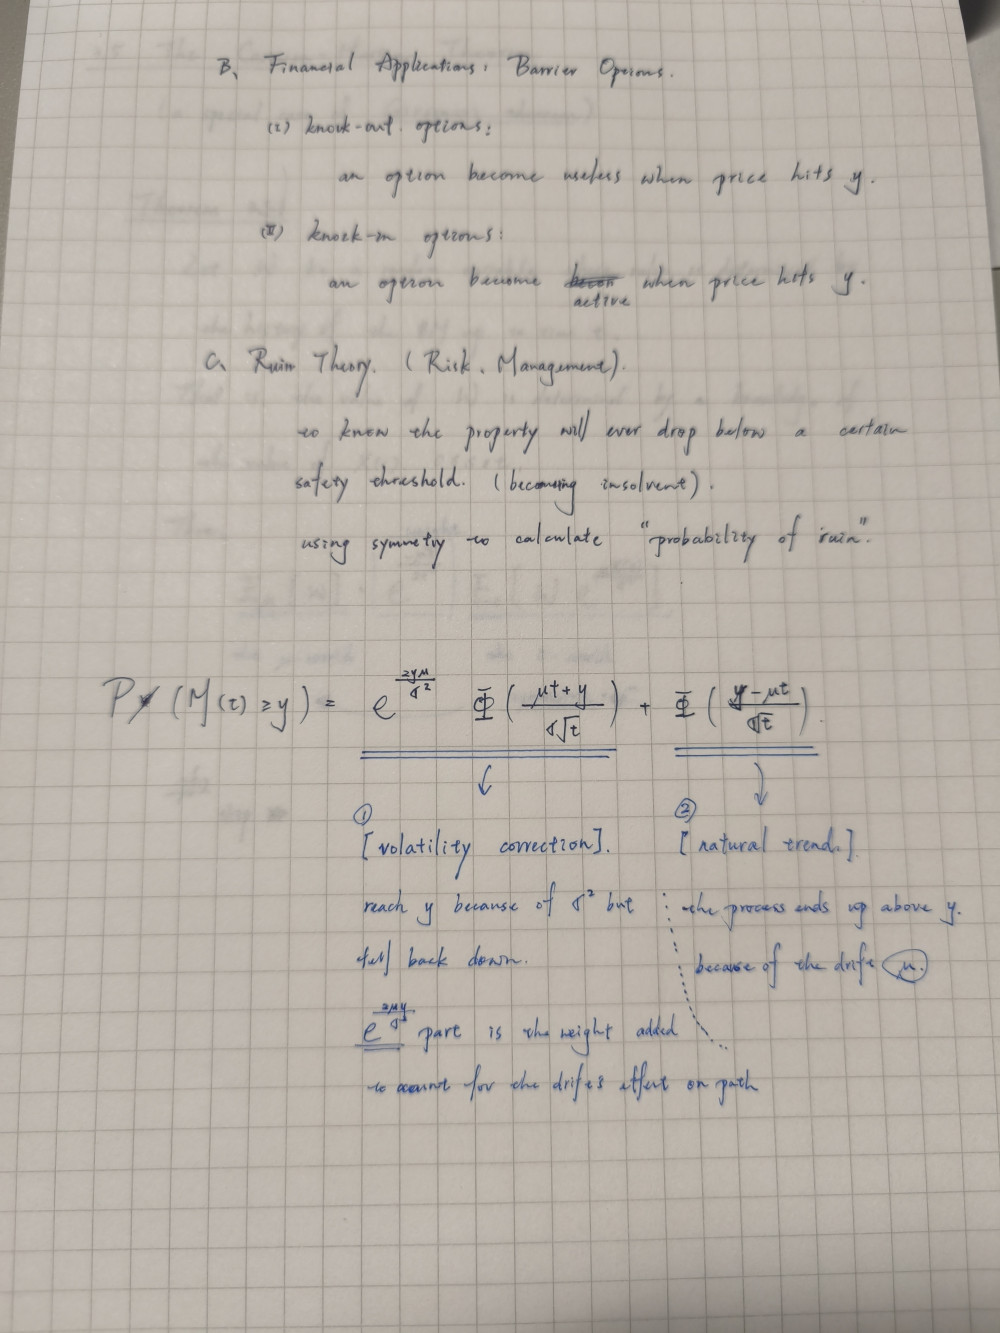 B、 Financial Applications: Barrier Options.
(i) knock-out options:
an option become useless when price hits y.
(ii) knock-in options:
an option become active when price hits y.
C、 Ruin Theory. (Risk. Management).
to know the property will ever drop below a certain
safety threshold. (becoming insolvent).
using symmetry to calculate "probability of ruin".
P(M(t) ≥ y) = e^{2yμ/σ²} Φ̄((μt+y)/(σ√t)) + Φ̄((y-μt)/(σ√t)).
① ②
[volatility correction]. [natural trend.]
reach y because of σ² but the process ends up above y.
fell back down. because of the drift μ.
e^{2μy/σ²} part is the weight added
to account for the drift's effect on path